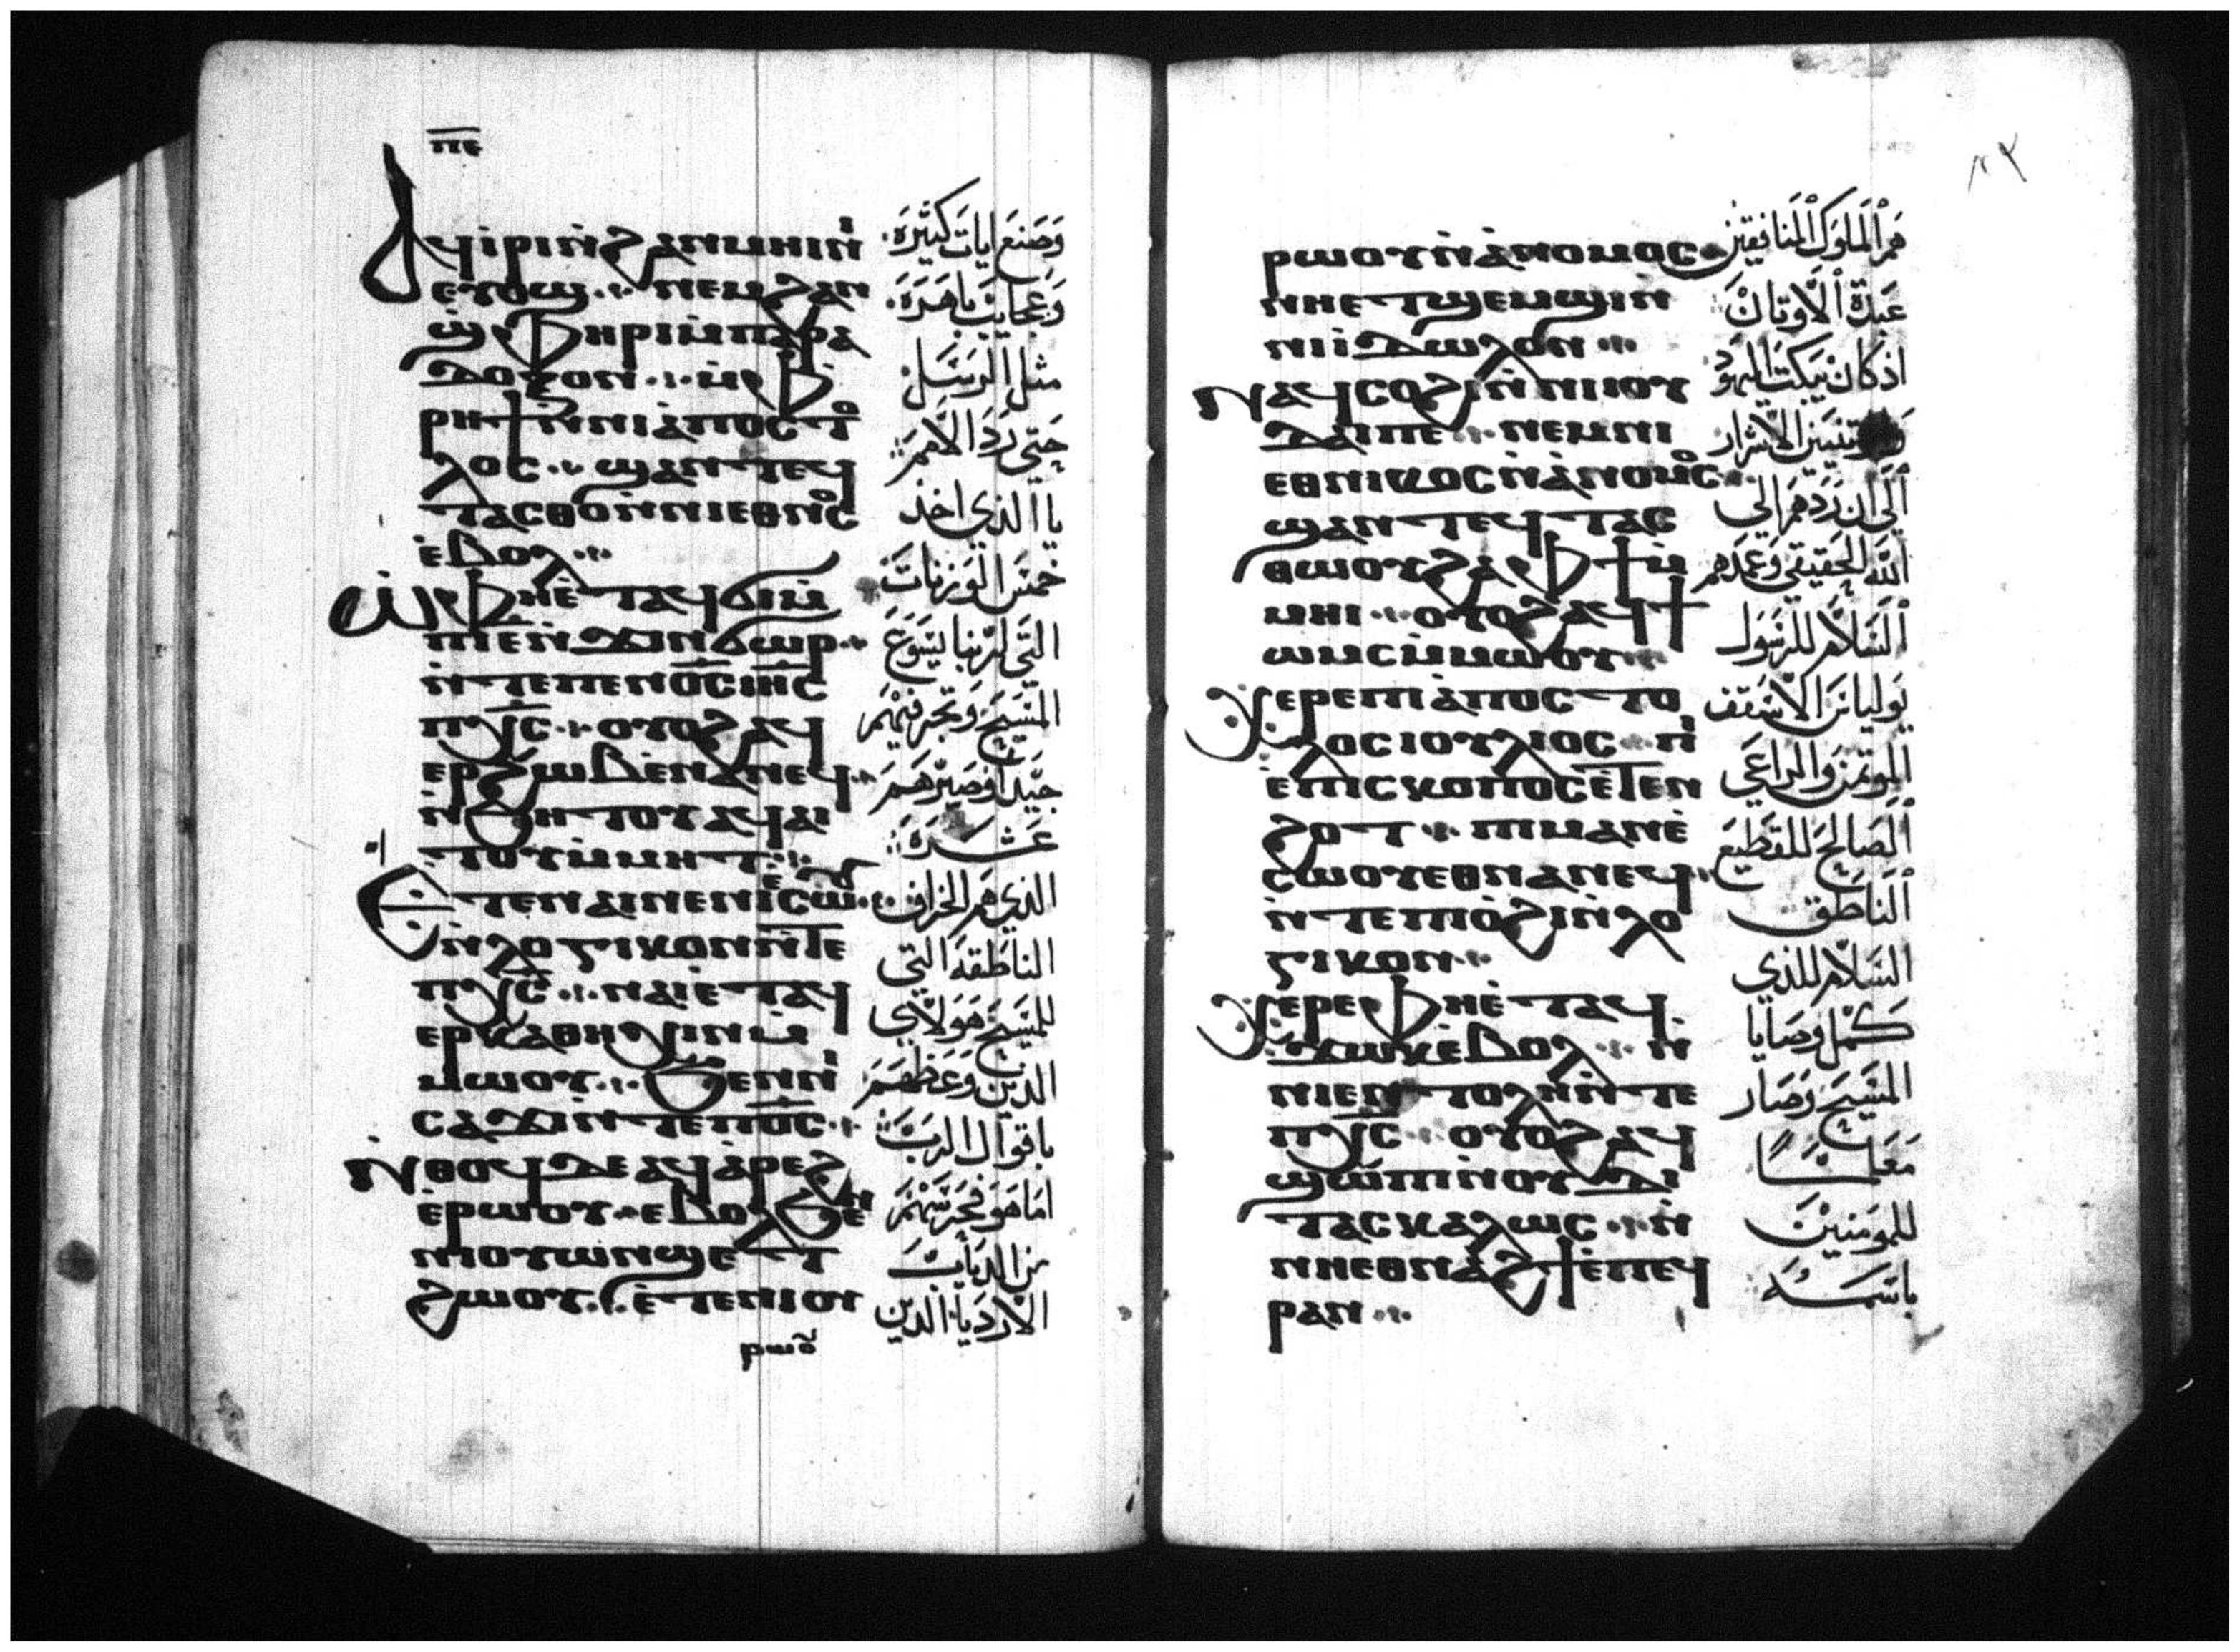 ⲡⲉ
ⲁϥⲓⲣⲓⲛ̀ϩⲁⲛⲙⲏⲓⲛⲓ̀
ⲉⲩⲟϣ ⲛⲉⲙϩⲁⲛ
ϣ̀ⲫⲏⲣⲓⲙ̀ⲡⲁⲣⲁ
ⲇⲟⲝⲟⲛ ⲙ̀ⲫ
ⲣⲏϯⲛ̀ⲛⲓⲁ̀ⲡⲟⲥⲧⲟ
ⲗⲟⲥ ϣⲁⲛⲧⲉϥ
ⲧⲁⲥⲑⲟⲛ̀ⲛⲓⲉⲑⲛⲟⲥ
ⲉ̀ⲃⲟⲗ
ⲱ̀ⲫⲏⲉ̀ⲧⲁϥϭⲓⲙ̀
ⲡⲓⲉ̀ⲛ̀ϫⲓⲛϭⲱⲣ
ⲛ̀ⲧⲉⲡⲉⲛⲟ̅ⲥ̅ⲓⲏ̅ⲥ̅
ⲡⲭ̅ⲥ̅ ⲟⲩⲟϩⲁϥ
ⲉⲣϩⲱⲃⲉⲛⲁⲛⲉϥ
ⲛ̀ϧⲏⲧⲟⲩⲁϥⲁⲓ
ⲧⲟⲩⲙ̀ⲙⲏⲧ
ⲉⲧⲉⲛⲁⲓⲛⲉⲛⲓⲉ̀ⲥⲱⲟⲩ
ⲛ̀ⲗⲟⲅⲓⲕⲟⲛⲛ̀ⲧⲉ
ⲡⲭ̅ⲥ̅ ⲛⲁⲓⲉ̀ⲧⲁϥ
ⲉⲣⲕⲁⲑⲏⲭⲓⲛⲙ̀
ⲙⲱⲟⲩ ϧⲉⲛⲛⲓ
ⲥⲁϫⲓⲛ̀ⲧⲉⲡⲟ̅ⲥ̅
ⲛ̀ⲑⲟϥⲇⲉⲁϥⲁ̀ⲣⲉϩ
ⲉ̀ⲣⲱⲟⲩ ⲉⲃⲟⲗϧⲉⲛ
ⲛⲓⲟⲩⲱⲛϣⲉⲧ
ϩⲱⲟⲩ ⲉ̀ⲧⲉⲛⲓⲟⲩ
ⲣⲱⲟⲩ
وَصَنعَ ايات كَثيرَه
وَعجَايبَ باهَرَه
مثل الرسَل
حتى رَدَ الامَم
يا الذي اخذ
خمسَ الوَزنات
التي لربنا يسَوَع
المسَيحَ وَتجَرفيهَم
جيّدًا وَصيّرهَم
عَشَرَة
الذي هَم الخراف
الناطَقه التي
للمسَيح هَوَلاي
الذين وَعَظهَم
باقوَال الرَب
امَا هَوَ فحَرسَهم
من الديَاب
الارديَا الذين
ⲣⲱⲟⲩⲛ̀ⲁ̀ⲛⲟⲙⲟⲥ
ⲛⲏⲉⲧϣⲉⲙϣⲓⲛ
ⲛⲓⲓ̀ⲇⲱⲗⲟⲛ
ⲛⲁϥⲥⲟϩⲓⲛ̀ⲛⲓⲓⲟⲩ
ⲇⲁⲓⲡⲉ ⲛⲉⲙⲛⲓ
ⲉⲑⲛⲓⲕⲟⲥⲛ̀ⲁ̀ⲛⲟⲙⲟⲥ
ϣⲁⲛⲧⲉϥⲧⲁⲥ
ⲑⲱⲟⲩϩⲁⲫϯⲙ̀
ⲙⲏⲓ ⲟⲩⲟϩⲁϥϯ
ⲱⲙⲥⲙ̀ⲙⲱⲟⲩ
ⲭⲉⲣⲉⲡⲓⲁ̀ⲡⲟⲥⲧⲟ
ⲗⲟⲥⲓⲟⲩⲗⲓⲟⲥ ⲡⲓ
ⲉ̀ⲡⲓⲥⲕⲟⲡⲟⲥⲉ̀ⲧⲉⲛ
ϩⲟⲧ ⲡⲓⲙⲁⲛⲉ̀
ⲥⲱⲟⲩⲉⲑⲛⲁⲛⲉϥ
ⲛ̀ⲧⲉⲡⲓⲟ̀ϩⲓⲛ̀ⲗⲟ
ⲅⲓⲕⲟⲛ
ⲭⲉⲣⲉⲫⲏⲉ̀ⲧⲁϥ
ϫⲱⲕⲉ̀ⲃⲟⲗ ⲛ̀
ⲛⲓⲉⲛⲧⲟⲗⲏⲛ̀ⲧⲉ
ⲡⲭ̅ⲥ̅ ⲟⲩⲟϩⲁϥ
ϣⲱⲡⲓⲛ̀ⲟⲩⲇⲓ
ⲇⲁⲥⲕⲁⲗⲟⲥ ⲛ̀
ⲛⲏⲉⲑⲛⲁϩϯⲉ̀ⲡⲉϥ
ⲣⲁⲛ
هَم المَلوَك المَنافقين
عَبَدَة الاوَثانْ
اذ كان يَبَكت اليهَوَد
الاشرار
الي ان رَدَهَم الي
الله الحَقيقي وَعَمدَهم
السَلام للرسَوَل
يَوَليانسَ الاسَقف
الموَتمَن وَالراعَي
الصَالح للقطيَع
الناطَق
السَلام للذي
كَمل وَصَايا
المسَيحَ وَصَار
مَعَلمًا
للموَمنين
باسَمَه